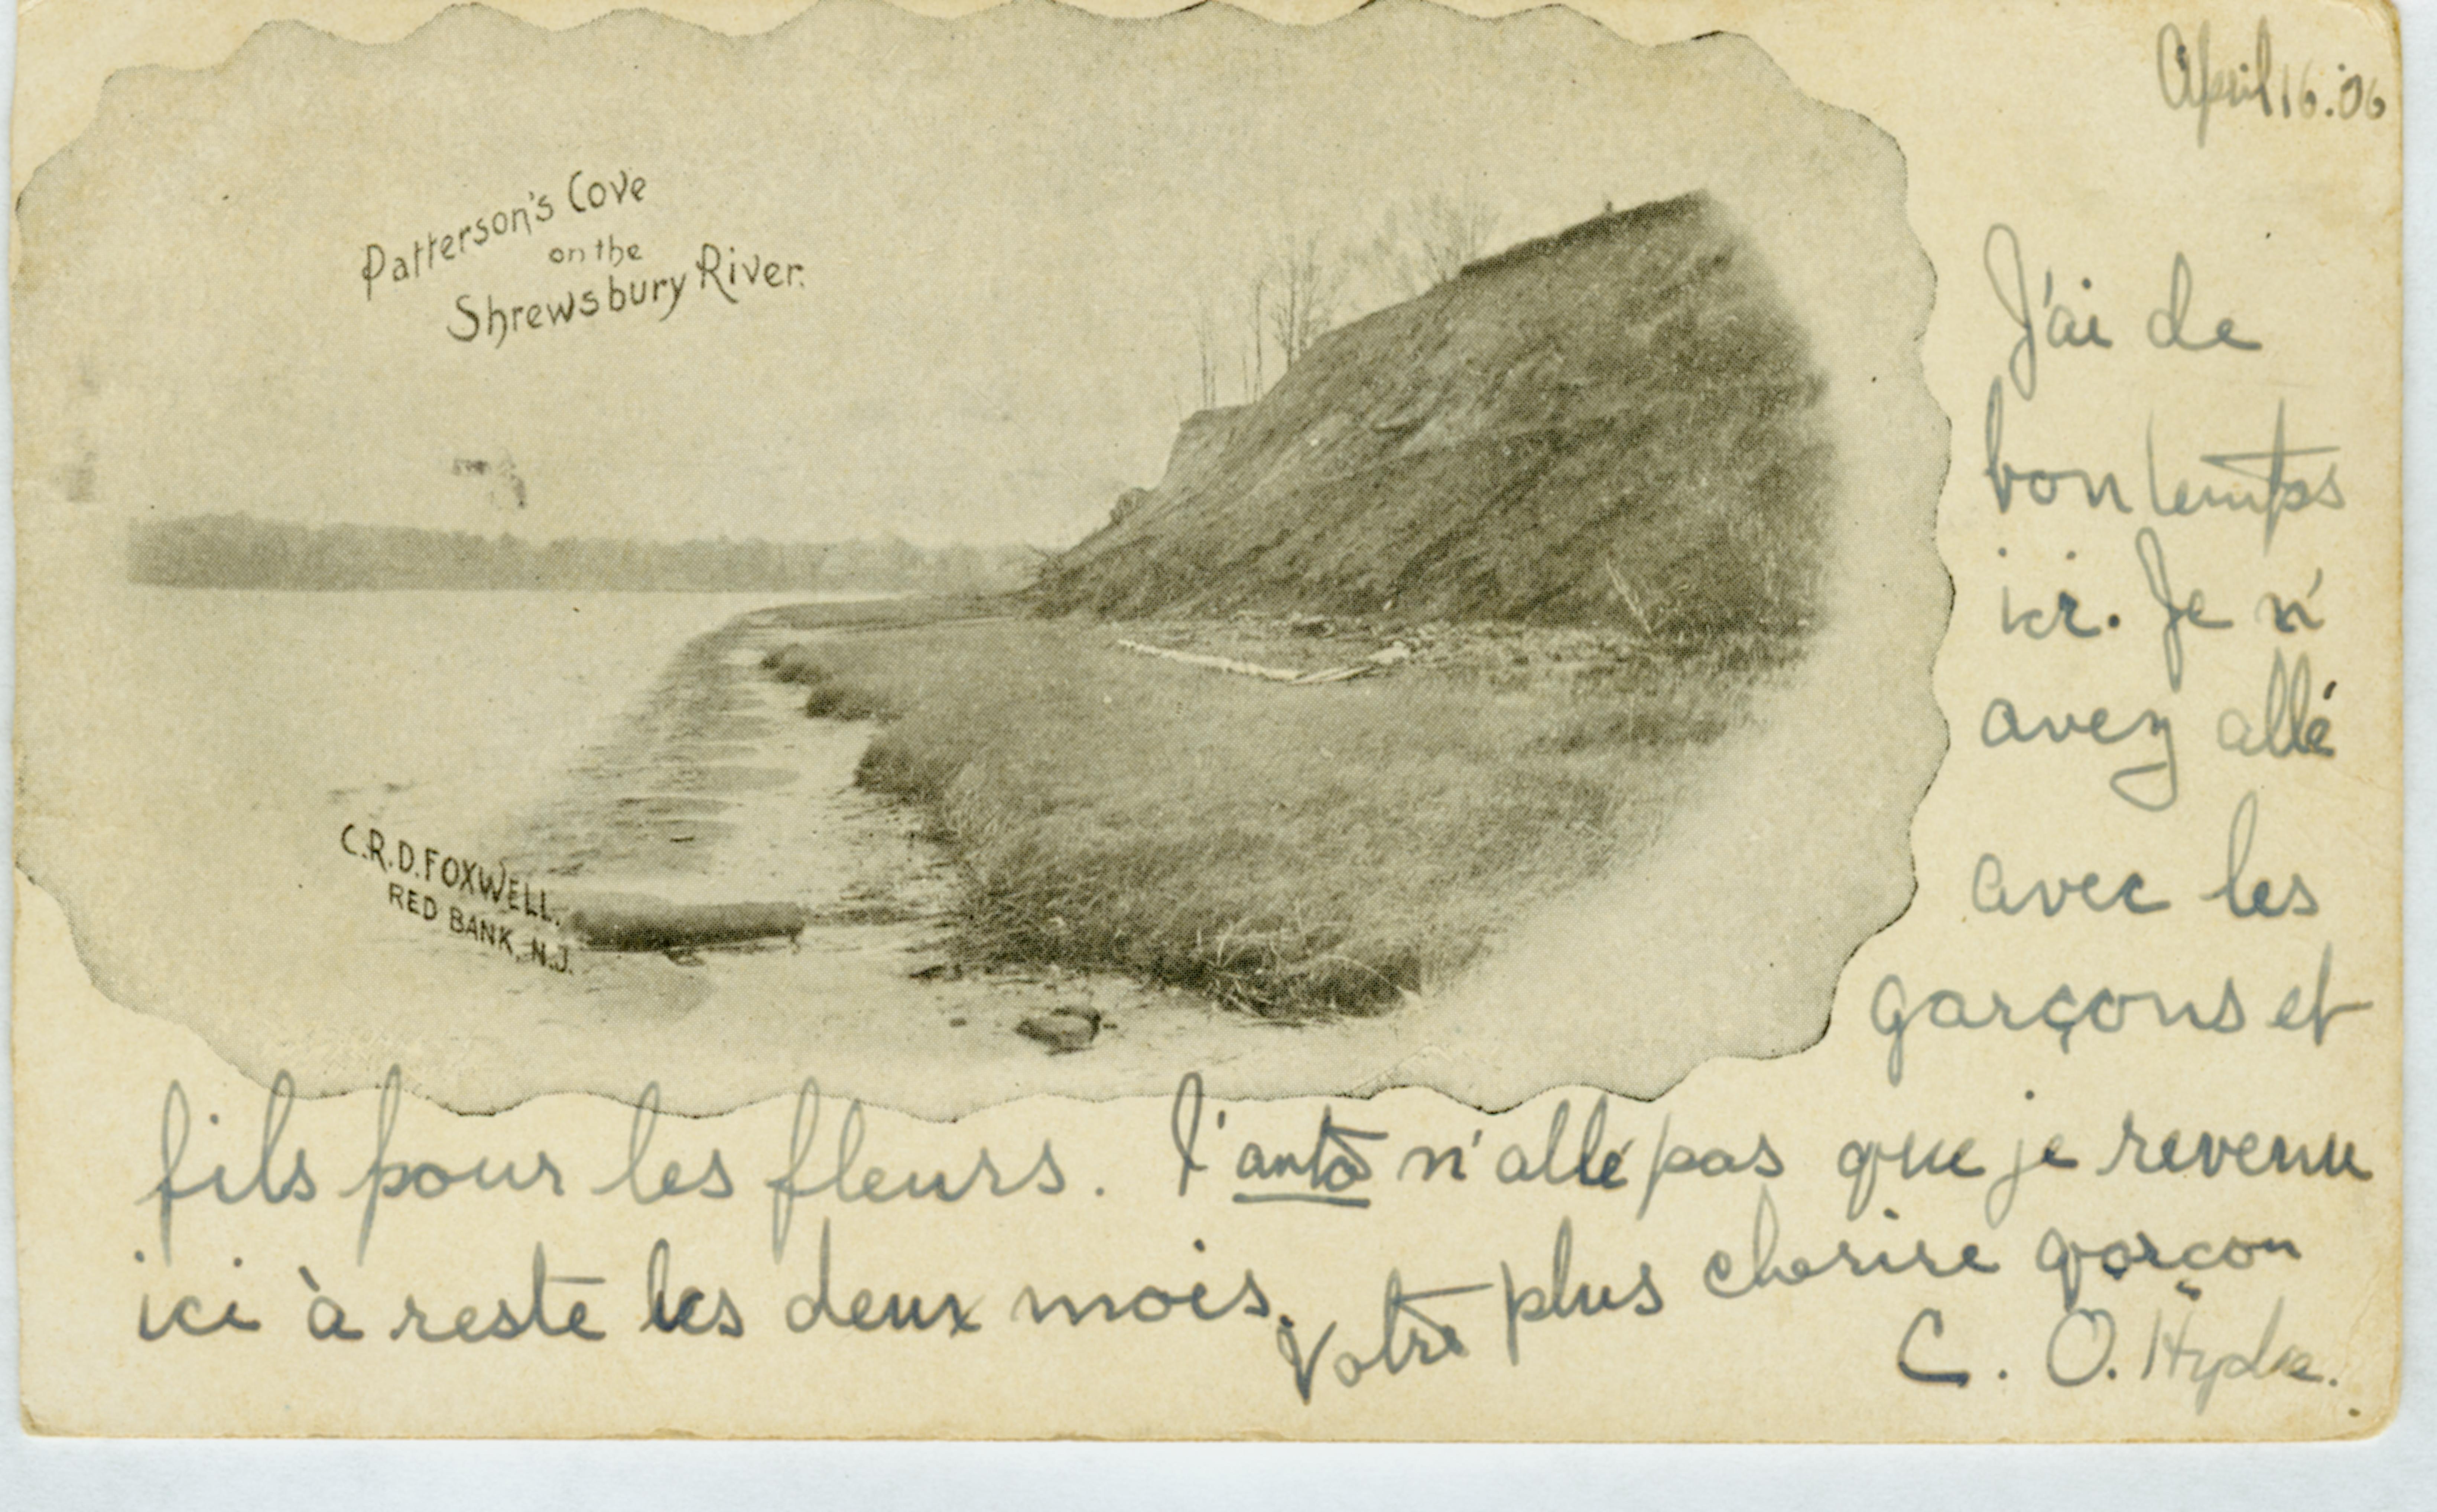 April 16. '06
Patterson's Cove
on the
Shrewsbury River.
C.R.D. FOXWELL.
RED BANK, N.J.
J'ai de
bon temps
ici. Je n'
avez allé
avec les
garçons et
fils pour les fleurs. l'auto n'allé pas que je revenu
ici à reste les deux mois.
Votre plus cherire garçon
C. O. Hyde.